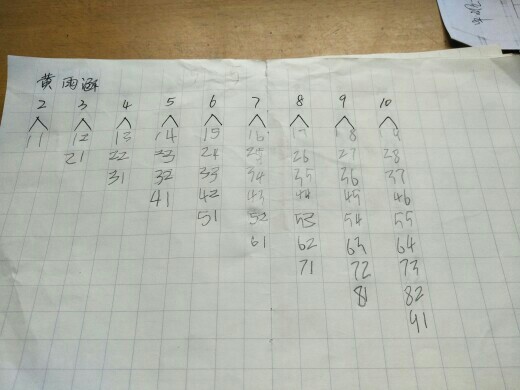 黄雨涵
2 3 4 5 6 7 8 9 10
11 12 13 14 15 16 17 18 19
21 22 23 24 25 26 27 28
31 32 33 34 35 36 37
41 42 43 44 45 46
51 52 53 54 55
61 62 63 64
71 72 73
81 82
91